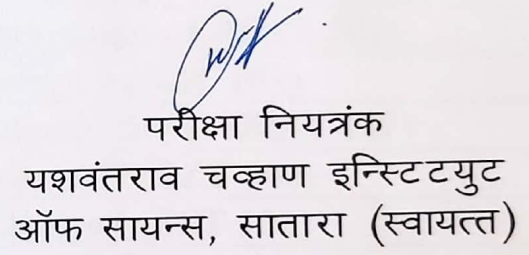 परीक्षा नियत्रंक
यशवंतराव चव्हाण इन्स्टिटयुट
ऑफ सायन्स, सातारा (स्वायत्त)